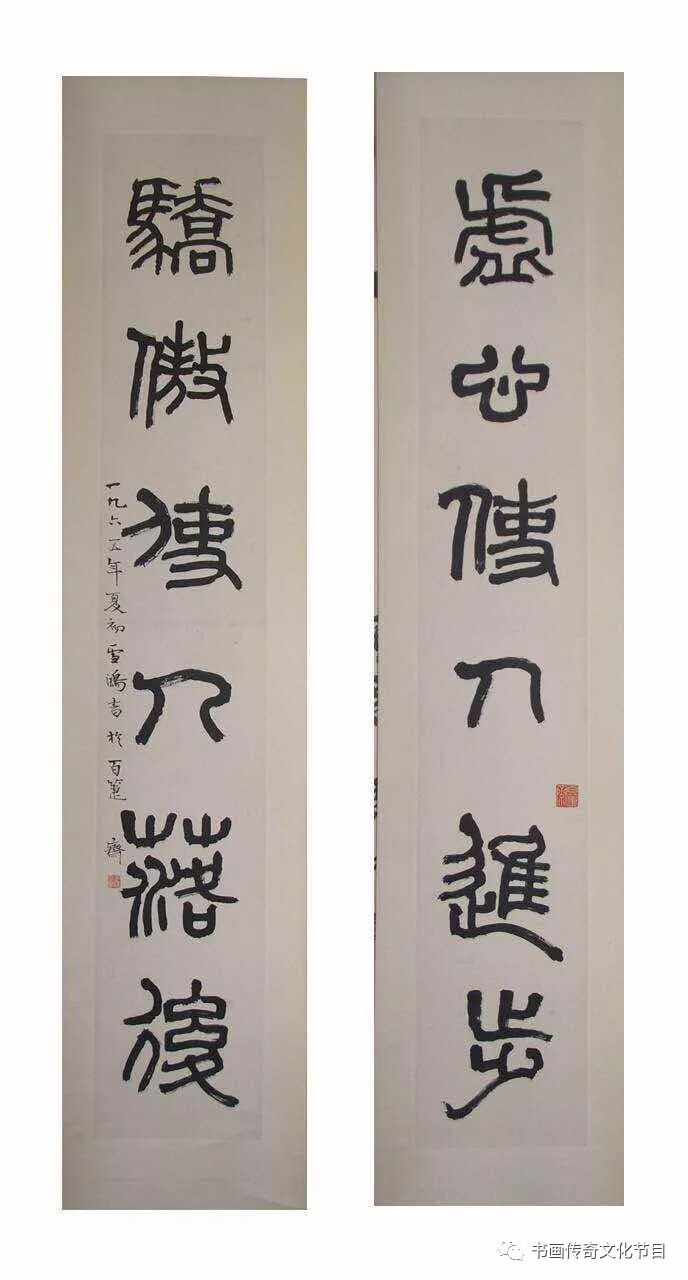 虛心使人進步
驕傲使人落後
一九六五年夏初雪鴻書於百蹇齋
书画传奇文化节目